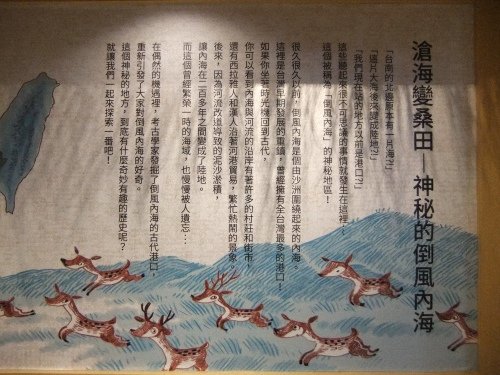 滄海變桑田—神秘的倒風內海
「台南的北邊原本有一片海?!」
「這片大海後來變成陸地?!」
「我們現在站的地方以前是港口?!」
這些聽起來很不可思議的事情就發生在這裡,
這個被稱為「倒風內海」的神秘地區!
很久很久以前,倒風內海是個由沙洲圍繞起來的內海。
這裡是台灣早期發展的重鎮,曾經擁有全台灣最多的港口!
如果你坐著時光機回到古代,
你可以看到內海與河流的沿岸有著許多的村莊和街市,
還有西拉雅人和漢人沿著河港貿易,繁忙熱鬧的景象。
後來,因為河流改道導致的泥沙淤積,
讓內海在二百多年之間變成了陸地。
而這個曾經繁榮一時的海域,也慢慢被人遺忘…
在偶然的機遇裡,考古學家發掘了倒風內海的古代港口,
重新引發了大家對倒風內海的好奇。
這個神秘的地方,到底有什麼奇妙有趣的歷史呢?
就讓我們一起來探索一番吧!